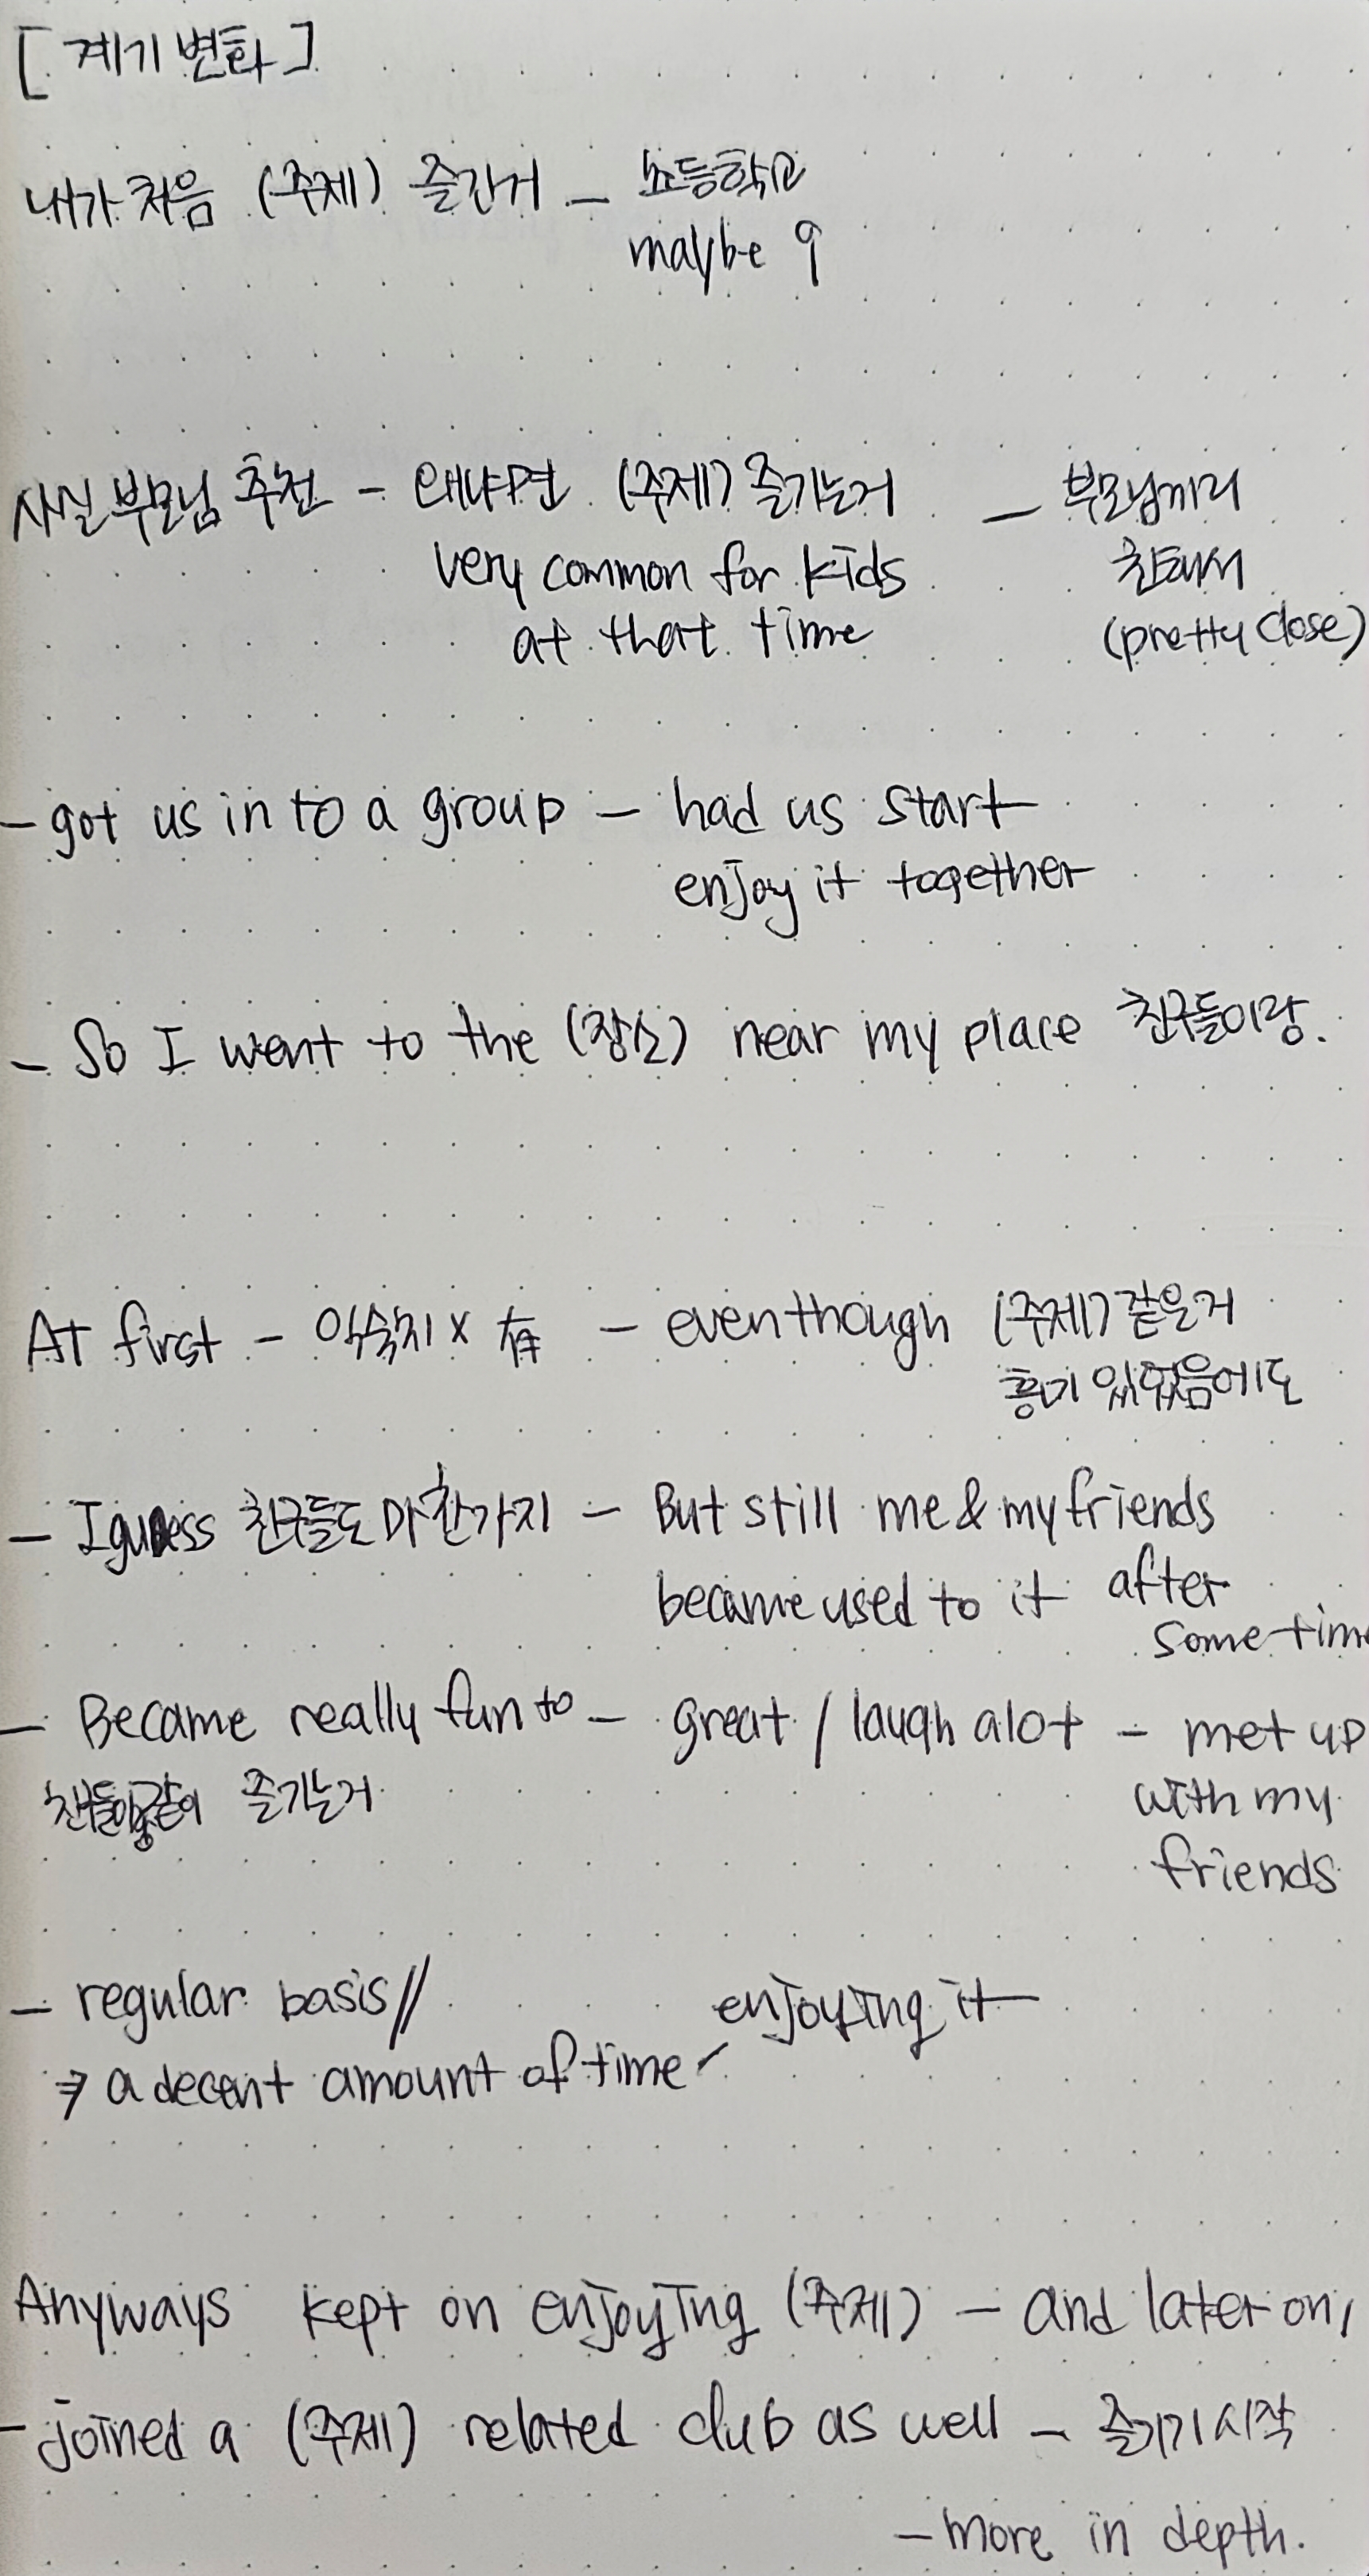 [계기 변화]
내가 처음 (주제) 즐긴거 – 초등학교
maybe 9
사실 부모님 추천 – 왜냐면 (주제) 즐기는거 – 부모님끼리
very common for kids 친해서
at that time (pretty close)
– got us in to a group – had us start
enjoy it together
– So I went to the (장소) near my place 친구들이랑.
At first – 익숙치 x 有 – even though (주제) 같은거
흥미 있었음에도
– I guess 친구들도 마찬가지 – But still me & my friends
became used to it after
some time
– Became really fun to – great / laugh alot – met up
친구들이랑같이 즐기는거 with my
friends
– regular basis // enjoying it
⇒ a decent amount of time
Anyways kept on enjoying (주제) – and later on,
– joined a (주제) related club as well – 즐기기 시작
– more in depth.